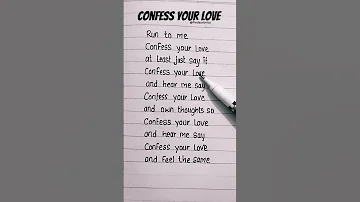 CONFESS YOUR LOVE
Run to me
Confess your Love
at Least Just say it
Confess your Love
and hear me say
Confess your Love
and own thoughts so
Confess your Love
and hear me say
Confess your Love
and feel the same